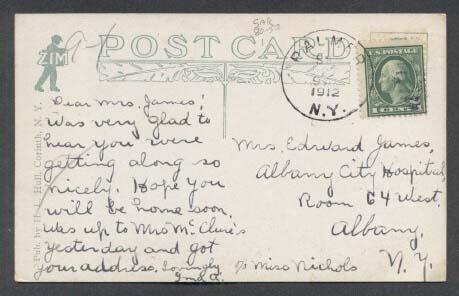 POST CARD
ZIM
SAR
Pub. by H. L. Hull, Corinth, N. Y.
PALM
1912
N.Y.
U.S. POSTAGE
1 CENT 1
Dear Mrs. James;
Was very glad to
hear you were
getting along so
nicely. Hope you
will be home soon.
was up to Mrs McClure's
yesterday and got
your address. Lovingly
Mrs. Edward James,
Albany City Hospital,
Room 64 West.
Albany.
N. Y.
c/o Miss Nichols